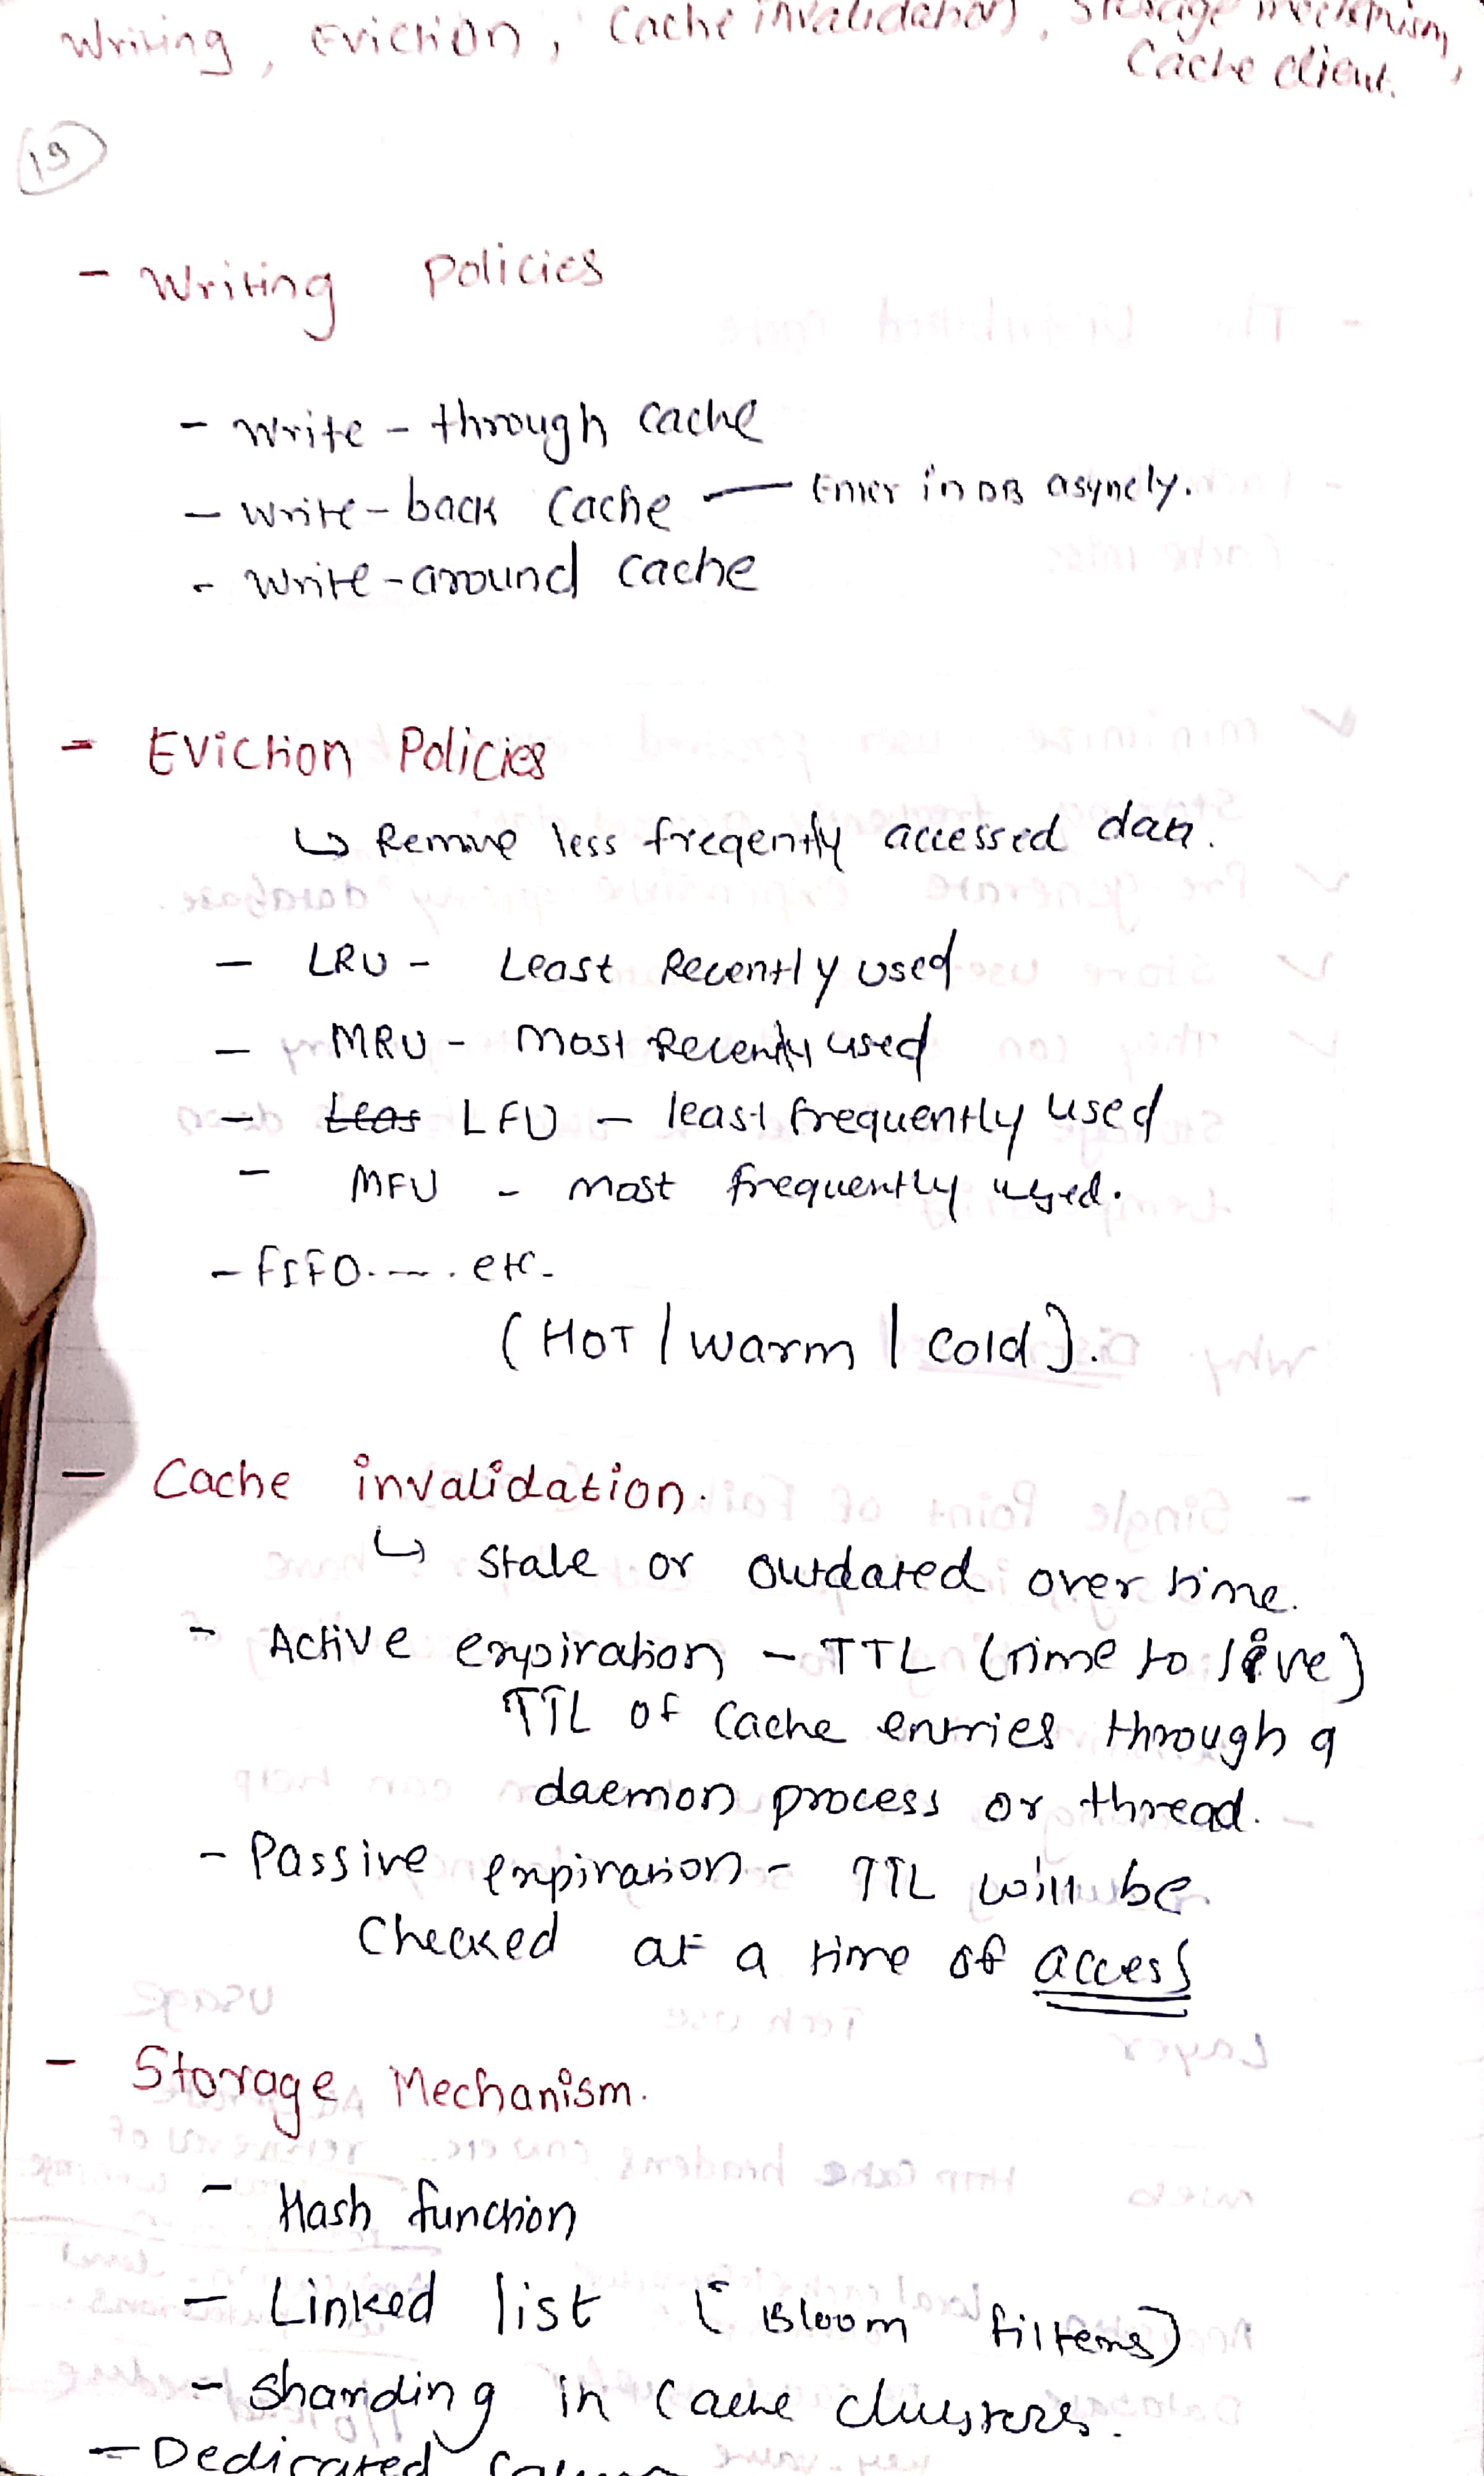 Writing, Eviction, Cache invalidation, Storage mechanism,
Cache client.
19
- Writing policies
- Write-through cache
- Write-back Cache — Enter in DB asyncly.
- Write-around cache
- Eviction Policies
↳ Remove less freqently accessed data.
- LRU - Least Recently used
- MRU - Most Recently used
- Leas LFU - least frequently used
- MFU - most frequently used.
- FIFO..... etc.
(HOT | warm | cold).
- Cache invalidation.
↳ stale or outdated over time.
- Active expiration - TTL (time to live)
TTL of Cache entries through a
daemon process or thread.
- Passive expiration - TTL will be
Checked at a time of access
- Storage Mechanism.
- Hash function
- Linked list (Bloom filters)
- Sharding in Cache clusters.
- Dedicated